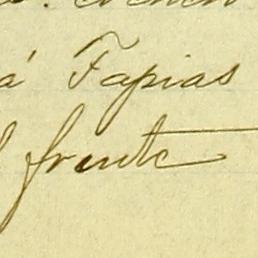 á Tapias
frente